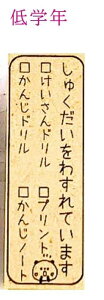 低学年
しゅくだいをわすれています
□けいさんドリル □プリント
□かんじドリル □かんじノート